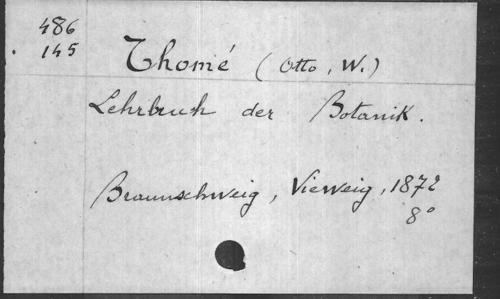 486
145
Thomé (Otto, W.)
Lehrbuch der Botanik.
Braunschweig, Vieweig, 1872
8°